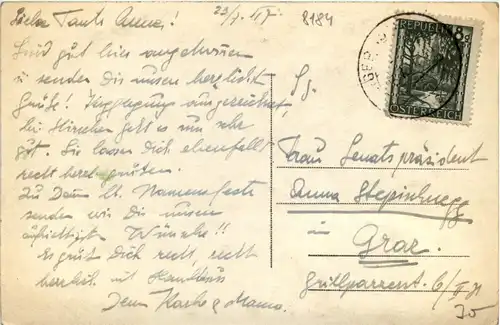 23/7. 47
8184
Liebe Tante Anna!
Sind gut hier angekommen
u senden Dir unsere herzlichst
Grüße! Verpflegung ausgezeichnet,
bei Hirschen geht es uns sehr
gut. Sie lassen Dich ebenfalls
recht herzl grüßen.
Zu Deinem lb. Namensfeste
senden wir Dir unsere
aufrichtigst Wünsche!!
Es grüßt Dich recht, recht
herzlich mit Handkuss
Dein & Mama.
REPUBLIK
8g
ÖSTERREICH
Frau Senatspräsident
Anna
in
Graz.
Grillparzerst. 6/II